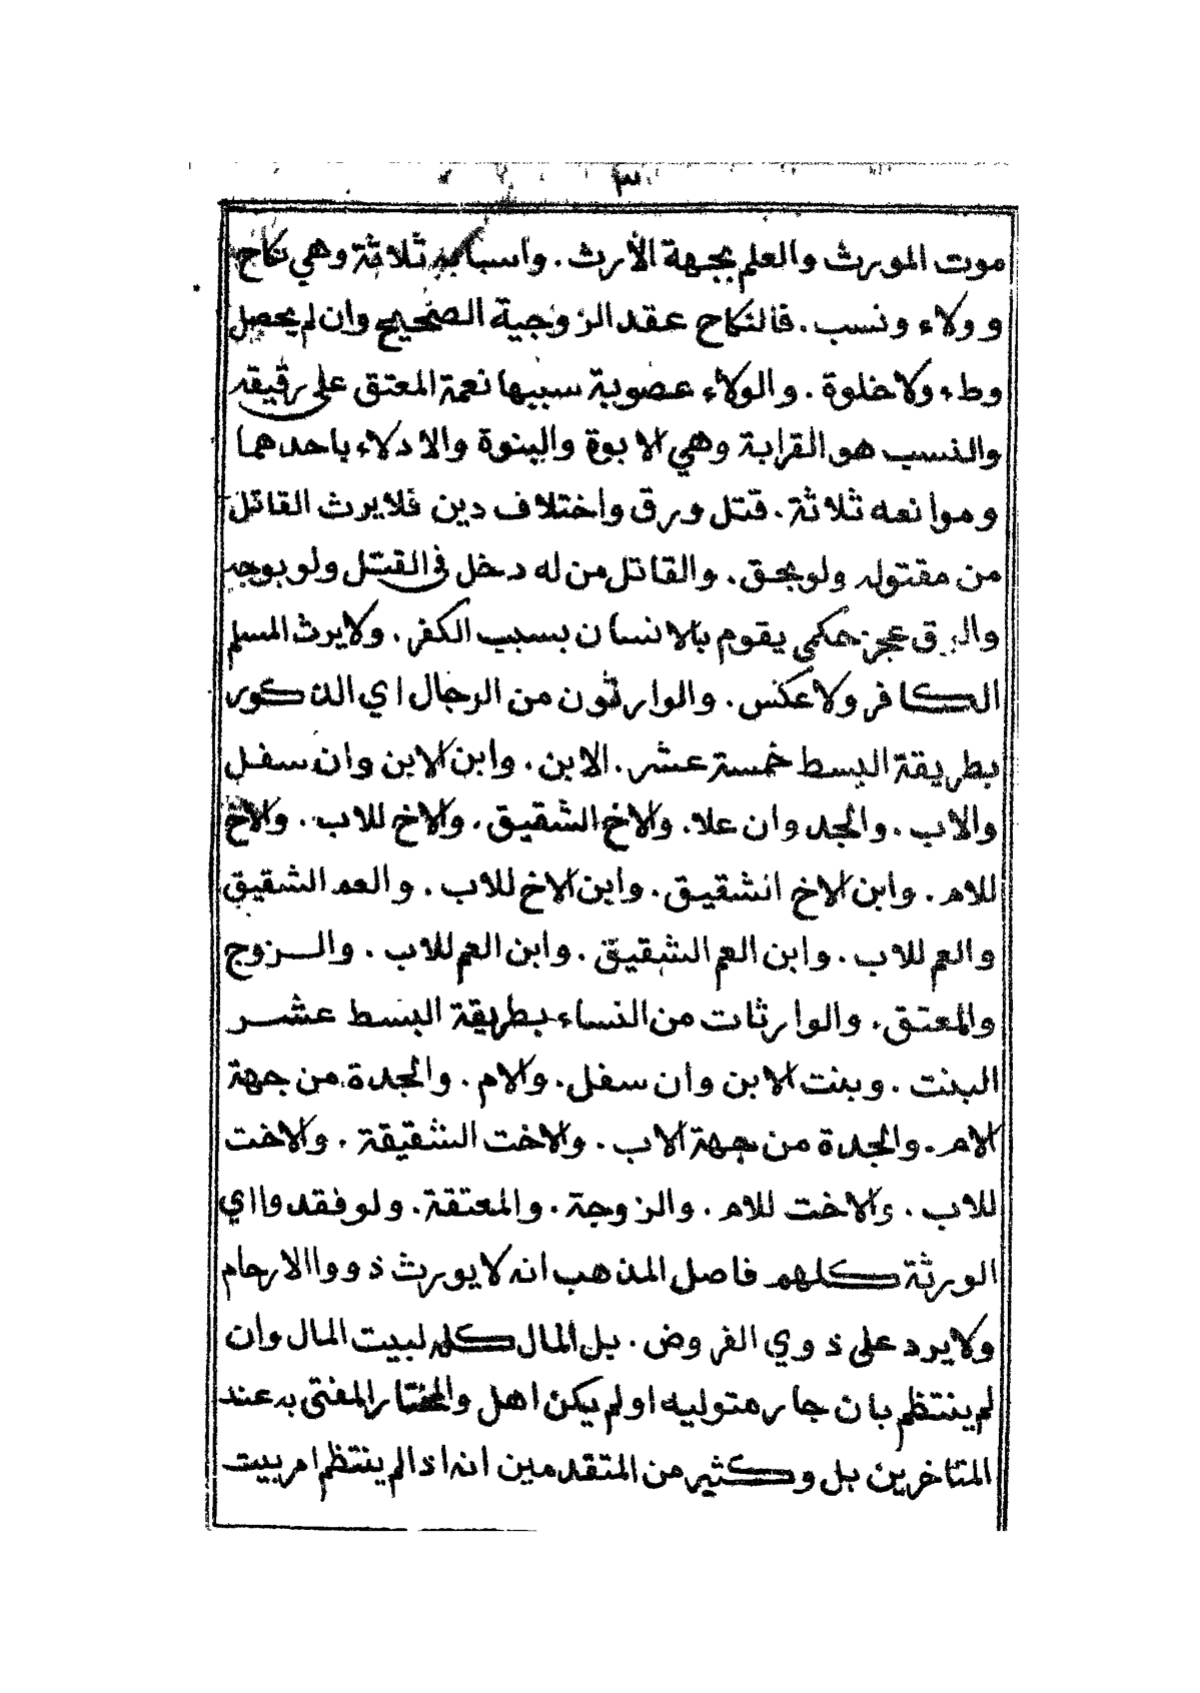 ٣
موت المورث والعلم بجهة الأرث. واسبابه ثلاثة وهي نكاح
وولاء ونسب. فالنكاح عقد الزوجية الصحيح وان لم يحصل
وطء ولاخلوة. والولاء عصوبة سببها نعمة المعتق على رقيقه
والنسب هو القرابة وهي الابوة والبنوة والادلاء باحدهما
وموانعه ثلاثة. قتل ورق واختلاف دين فلايرث القاتل
من مقتوله ولوبحق. والقاتل من له دخل فى القتل ولو بوجه
والرق عجز حكمي يقوم بالانسان بسبب الكفر. ولايرث المسلم
الكافر ولاعكس. والوارثون من الرجال اي الذكور
بطريقة البسط خمسة عشر. الابن. وابن الابن وان سفل
والاب. والجد وان علا. والاخ الشقيق. والاخ للاب. والاخ
للام. وابن الاخ انشقيق. وابن الاخ للاب. والعم الشقيق
والعم للاب. وابن العم الشقيق. وابن العم للاب. والزوج
والمعتق. والوارثات من النساء بطريقة البسط عشر
البنت. وبنت الابن وان سفل. والام. والجدة من جهة
الام. والجدة من جهة الاب. والاخت الشقيقة. والاخت
للاب. والاخت للام. والزوجة. والمعتقة. ولوفقدوا اي
الورثة كلهم فاصل المذهب انه لايورث ذووا الارحام
ولايرد على ذوي الفروض. بل المال كله لبيت المال وان
لم ينتظم بان جار متوليه اولم يكن اهل والمختار المفتى به عند
المتاخرين بل وكثير من المتقدمين انه اذالم ينتظم امر بيت